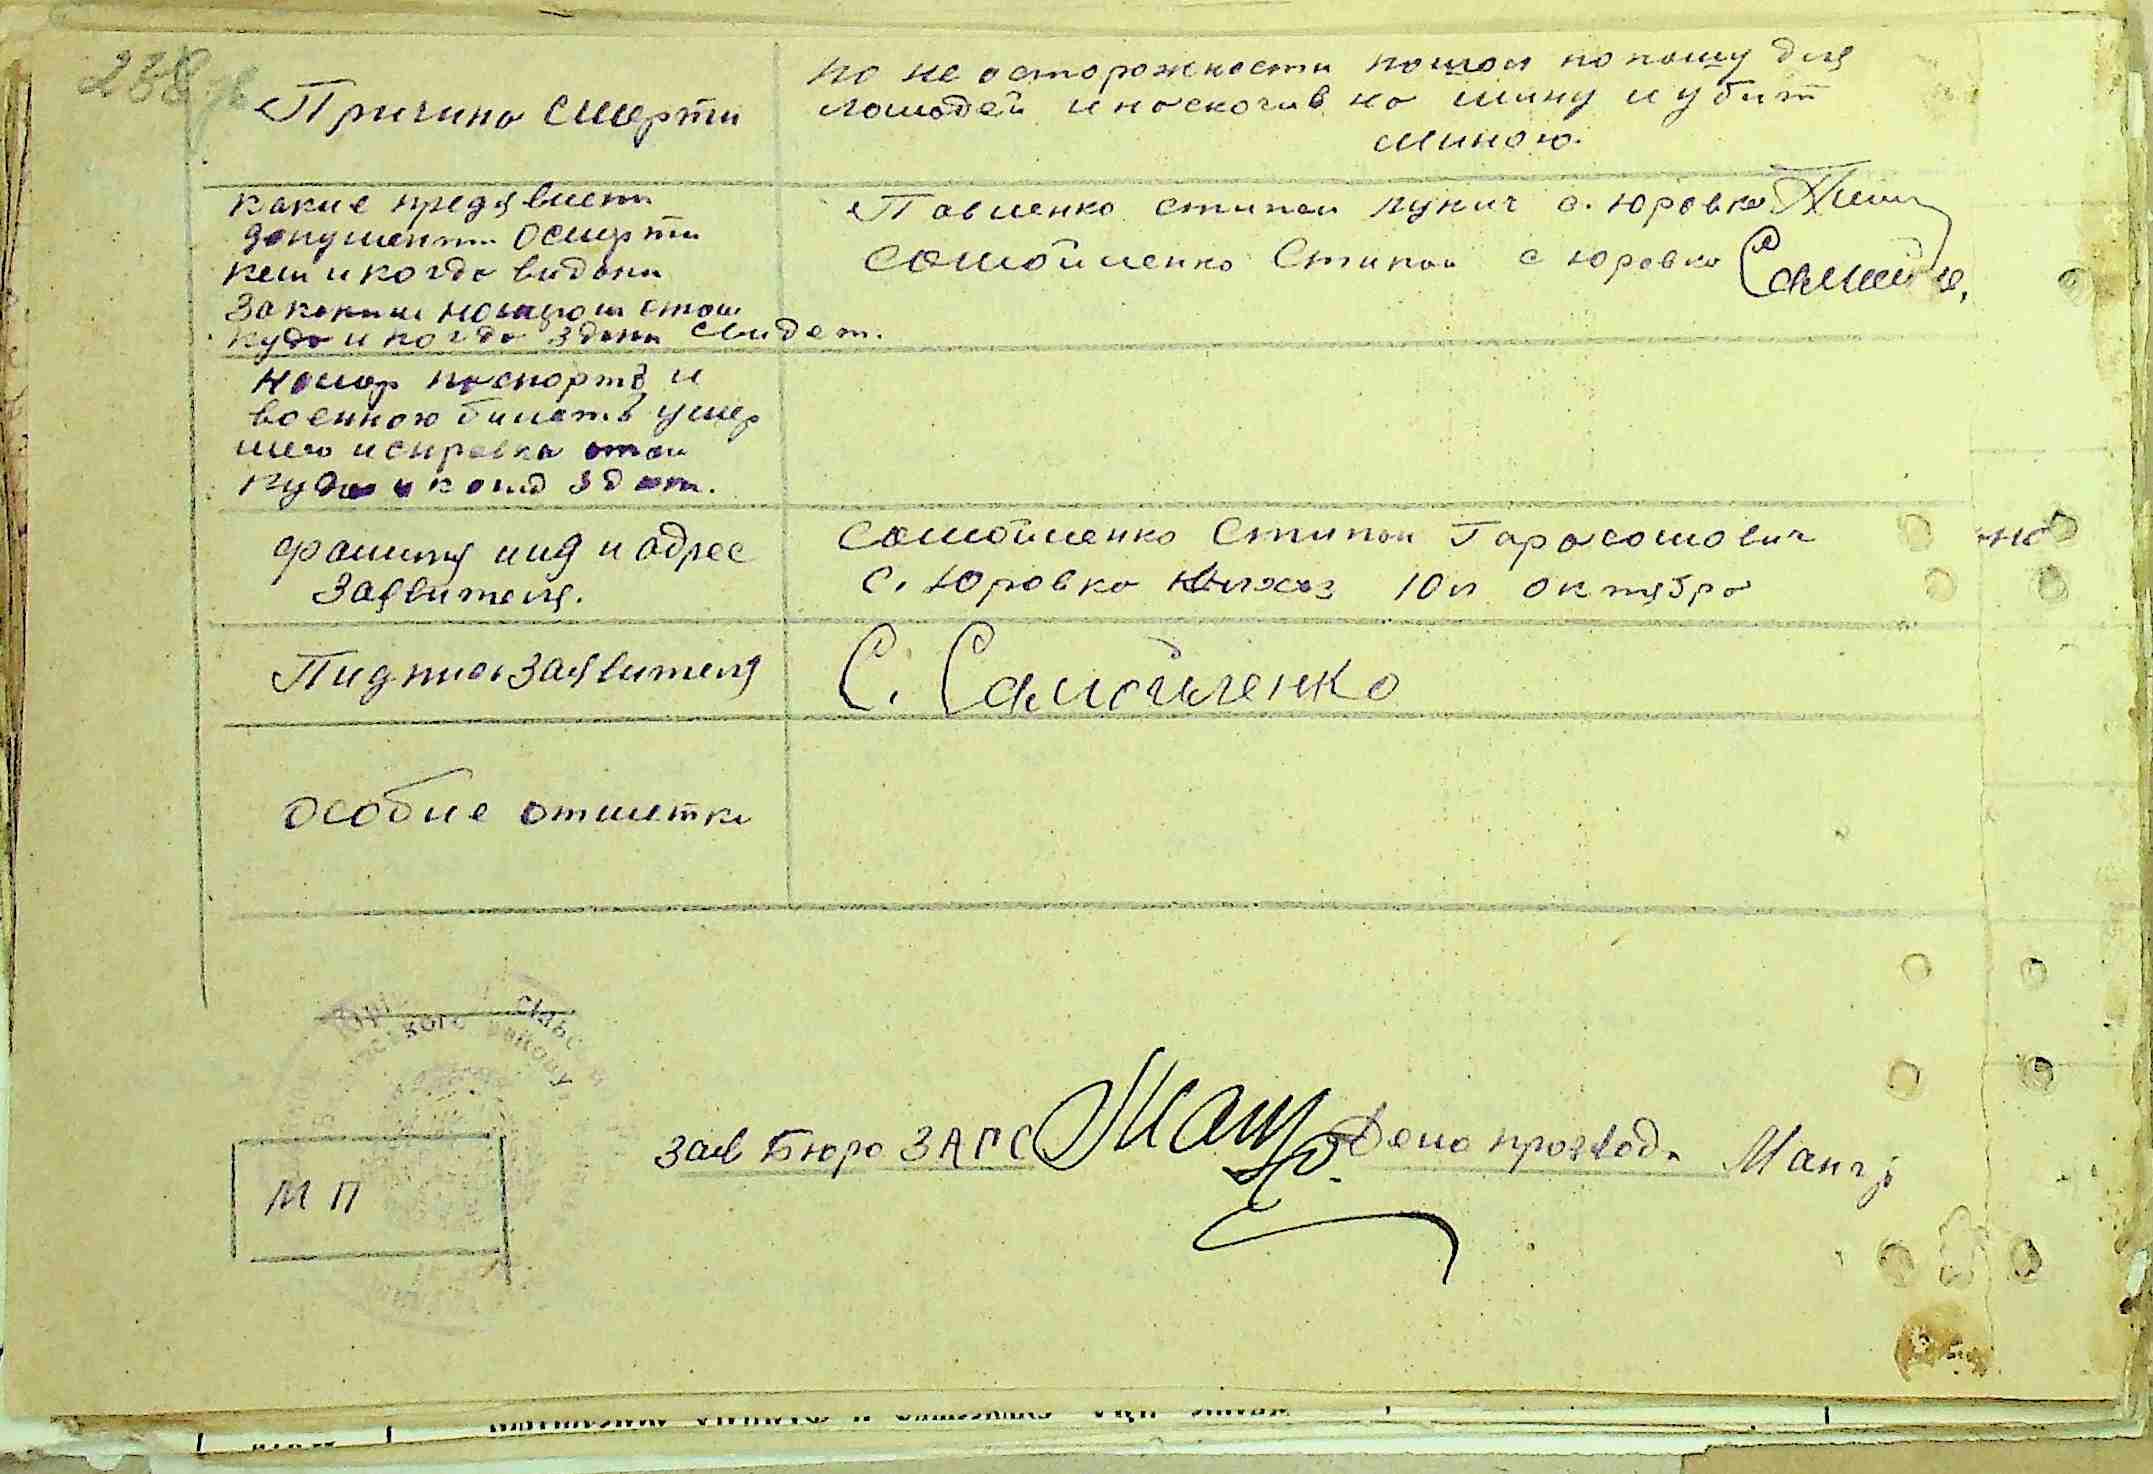 238
Причина смерти
по не осторожности пошол по пошу для
лошадей и наскочив на мину и убит
миною.
какие предявлени
документи о смерти
кем и когда видани
за каким номером
куда и когда здани свидет.
Павленко Стипан Лукич с. Юровка
Самойленко Стипан с Юровка
номер паспорта и
военного билета умер
шего и справка
куда и здат.
фамилия имя и адрес
заявителя.
Самойленко Стипан Гарасомович
с. Юровка колхоз 10 л октября
Пидпись заявителя
С. Самойленко
особие отметки
МП
Зав Бюро ЗАГС
Дело производ.